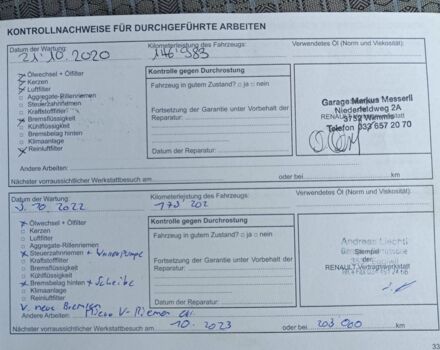 KONTROLLNACHWEISE FÜR DURCHGEFÜHRTE ARBEITEN
Datum der Wartung: Kilometerleistung des Fahrzeugs: Verwendetes Öl (Norm und Viskosität):
21.10.2020 146'983
Ölwechsel + Ölfilter
Kerzen
Luftfilter
Aggregate-Rillenriemen
Steuerzahnriemen
Kraftstofffilter
Bremsflüssigkeit
Kühlflüssigkeit
Bremsbelag hinten
Klimaanlage
Reinluftfilter
Kontrolle gegen Durchrostung
Fahrzeug in gutem Zustand? ja nein
Fortsetzung der Garantie unter Vorbehalt der
Reparatur:
Datum der Reparatur:
Garage Markus Messerli
Niederfeldweg 2A
RENAULT 3752 Wimmis
Telefon 033 657 20 70
Andere Arbeiten:
Nächster vorraussichtlicher Werkstattbesuch am oder bei km
Datum der Wartung: Kilometerleistung des Fahrzeugs: Verwendetes Öl (Norm und Viskosität):
10.2022
Ölwechsel + Ölfilter
Kerzen
Luftfilter
Aggregate-Rillenriemen
Steuerzahnriemen + Wasserpumpe
Kraftstofffilter
Bremsflüssigkeit
Kühlflüssigkeit
Bremsbelag hinten + Scheibe
Klimaanlage
Reinluftfilter
Kontrolle gegen Durchrostung
Fahrzeug in gutem Zustand? ja nein
Fortsetzung der Garantie unter Vorbehalt der
Reparatur:
Datum der Reparatur:
Andreas Liechti
Stempel
der
RENAULT Vertragswerkstatt
V. neue Bremsen V-Riemen
Nächster vorraussichtlicher Werkstattbesuch am 10.2023 oder bei 203 000 km
33